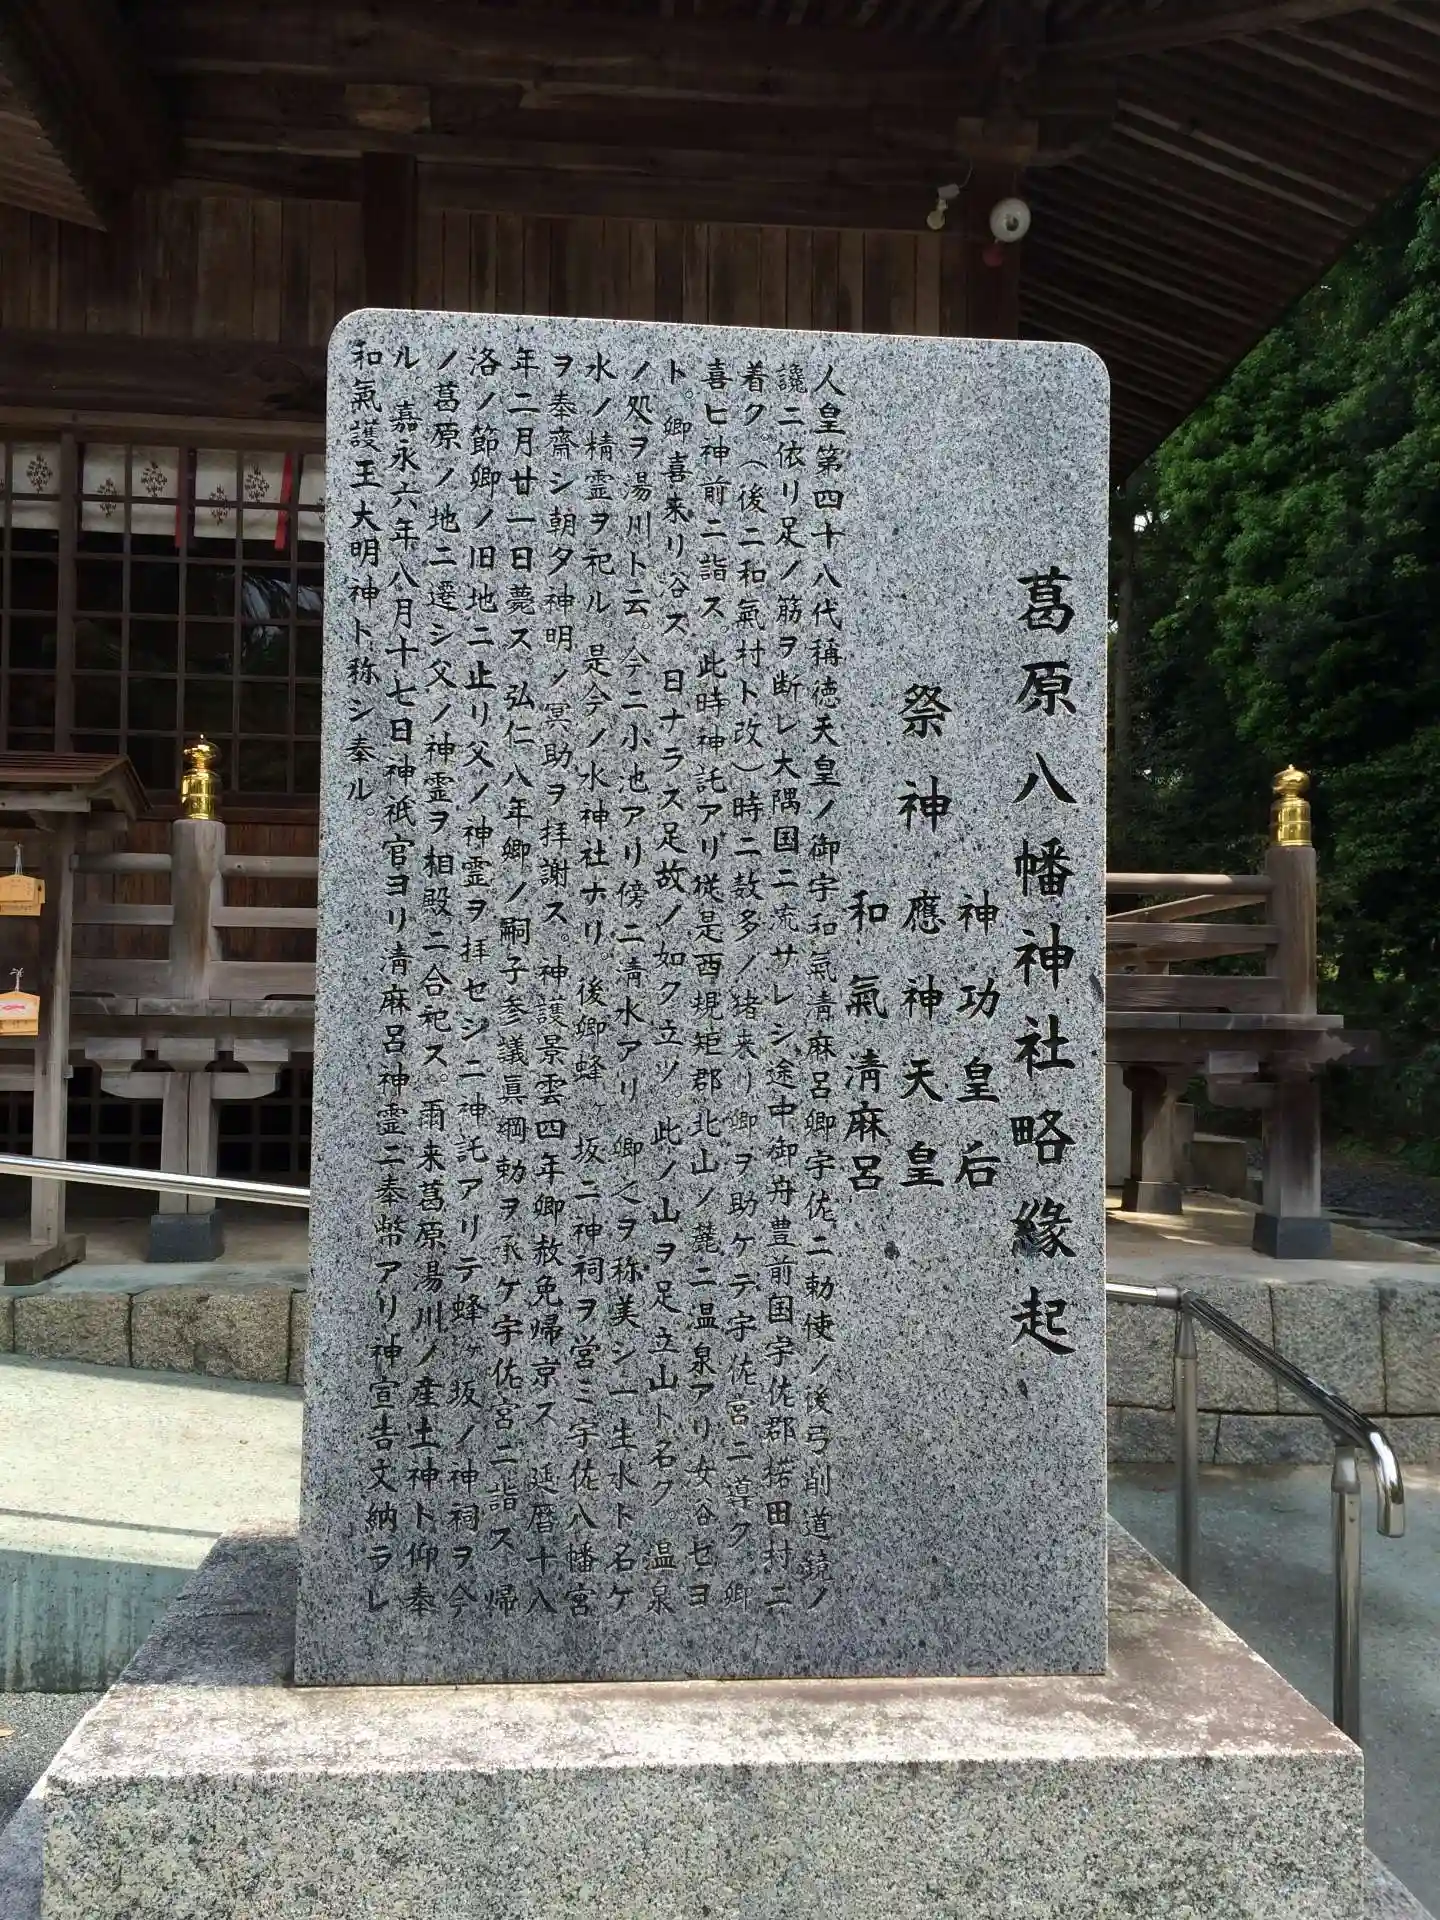 葛原八幡神社略縁起
神功皇后
祭神 應神天皇
和氣淸麻呂
人皇第四十八代稱徳天皇ノ御宇和氣淸麻呂卿宇佐ニ勅使ノ後弓削道鏡ノ
讒ニ依リ足ノ筋ヲ断レ大隅国ニ流サレシ途中御舟豊前国宇佐郡楉田村ニ
着ク。(後ニ和氣村ト改)時ニ数多ノ猪来リ卿ヲ助ケテ宇佐宮ニ導ク。卿
喜ヒ神前ニ詣ス。此時神託アリ従是西規矩郡北山ノ麓ニ温泉アリ女谷セヨ
ト。卿喜来リ谷ス。日ナラス足故ノ如ク立ツ。此ノ山ヲ足立山ト名ク。温泉
ノ処ヲ湯川ト云。今ニ小池アリ傍ニ淸水アリ 卿之ヲ称美シ一生水ト名ケ
水ノ精霊ヲ祀ル。是今ノ水神社ナリ。後卿蜂ヶ坂ニ神祠ヲ営ミ宇佐八幡宮
ヲ奉齋シ朝夕神明ノ冥助ヲ拝謝ス。神護景雲四年卿赦免帰京ス 延暦十八
年二月廿一日薨ス。弘仁八年卿ノ嗣子参議眞綱勅ヲ承ケ宇佐宮ニ詣ス 帰
洛ノ節卿ノ旧地ニ止リ父ノ神霊ヲ拝セシニ神託アリテ蜂ヶ坂ノ神祠ヲ今
ノ葛原ノ地ニ遷シ父ノ神霊ヲ相殿ニ合祀ス。爾来葛原湯川ノ産土神ト仰奉
ル。嘉永六年八月十七日神祇官ヨリ淸麻呂神霊ニ奉幣アリ神宣告文納ラレ
和氣護王大明神ト称シ奉ル。